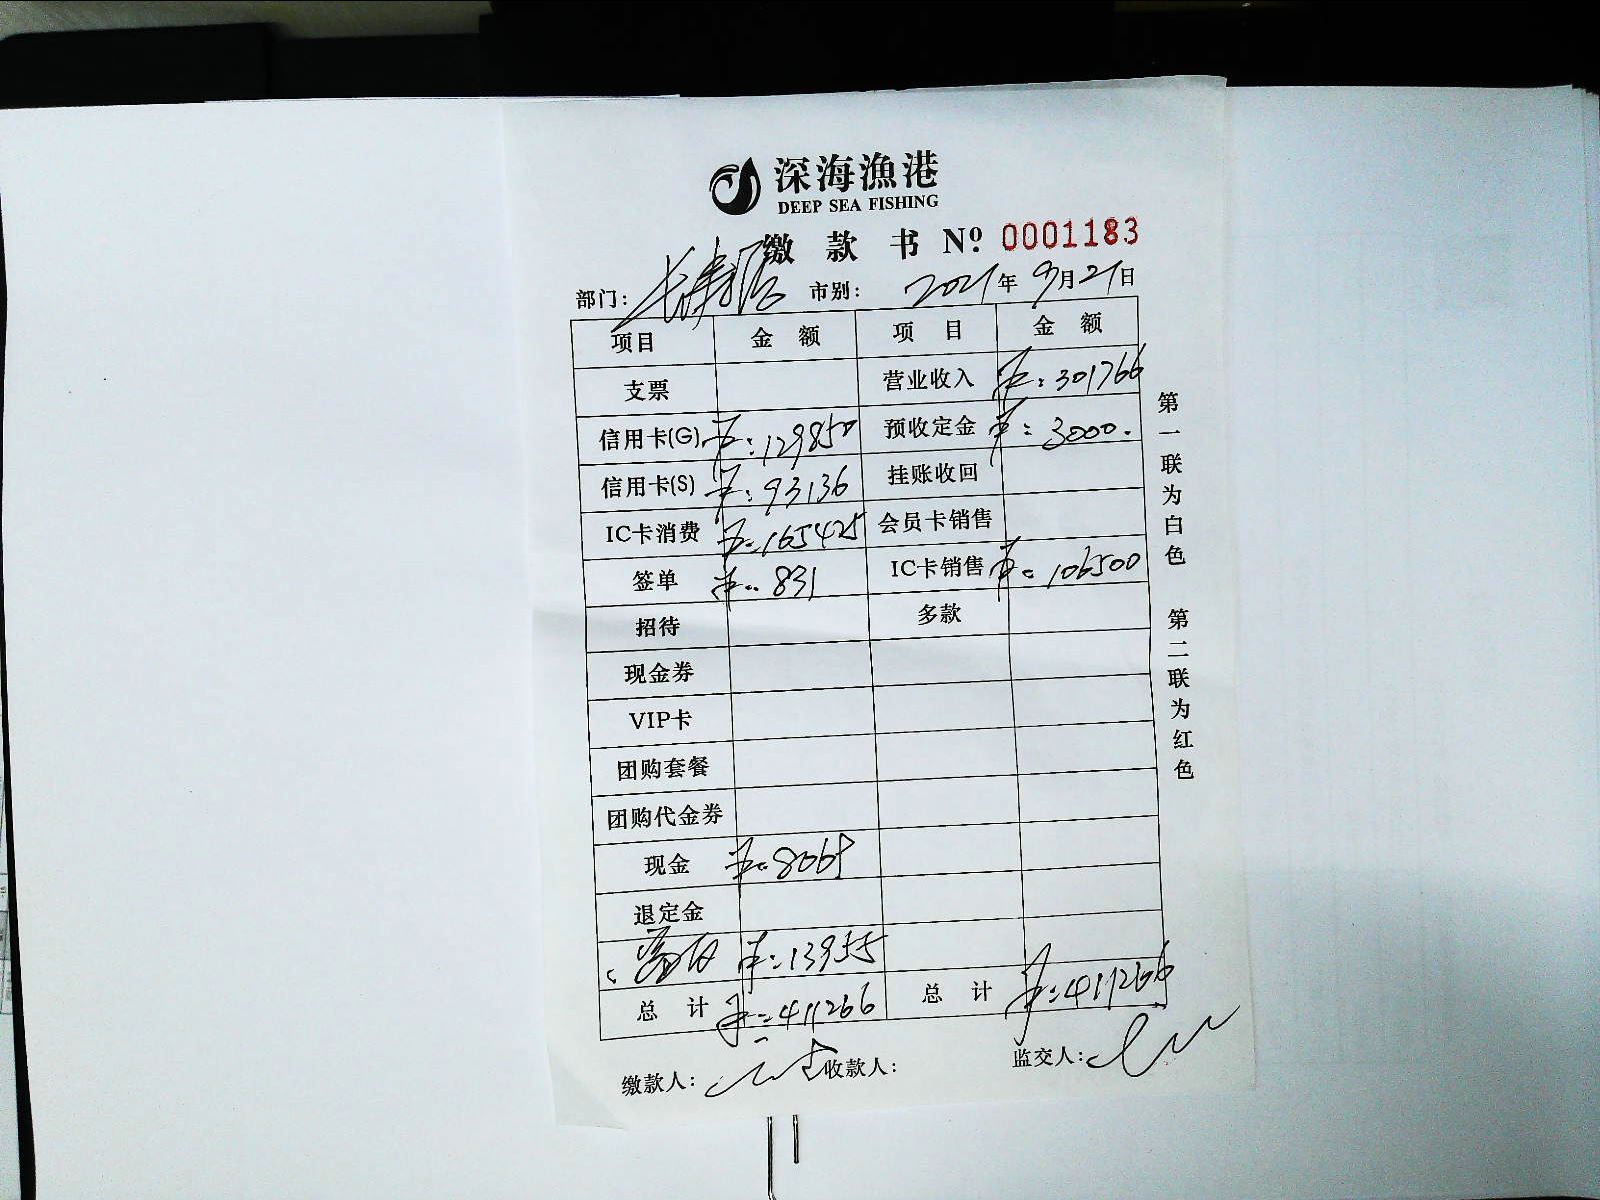 深海漁港
DEEP SEA FISHING
缴 款 书 Nº 0001183
部门: 长寿路 市别: 2021年 9月21日
项目 金 额 项 目 金 额
支票 营业收入 ¥:301766
信用卡(G) ¥:129850 预收定金 ¥:3000.
信用卡(S) ¥:93136 挂账收回
IC卡消费 ¥:165425 会员卡销售
签单 ¥:831 IC卡销售 ¥:106500
招待 多款
现金券
VIP卡
团购套餐
团购代金券
现金 ¥:8069
退定金
¥:13955
总 计 ¥:411266 总 计 ¥:411266
缴款人: 收款人: 监交人:
第一联为白色 第二联为红色